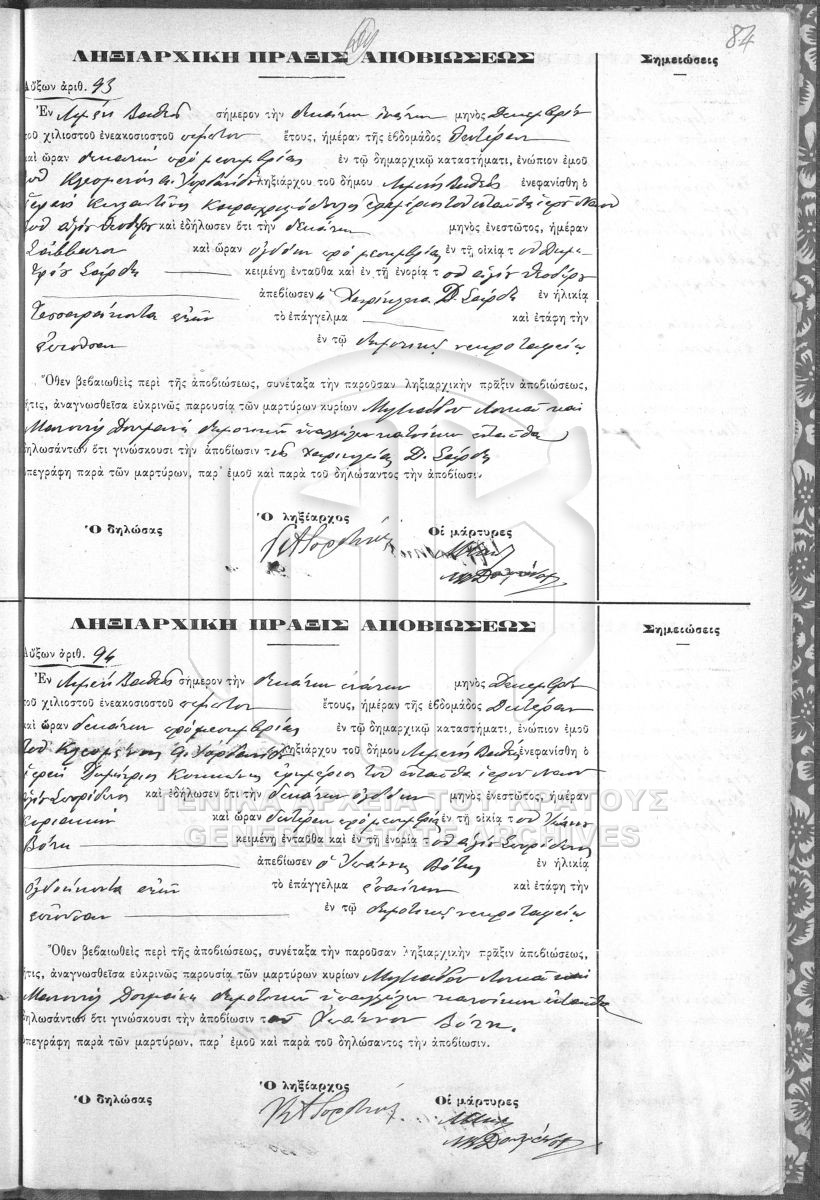 84
ΛΗΞΙΑΡΧΙΚΗ ΠΡΑΞΙΣ ΑΠΟΒΙΩΣΕΩΣ
Σημειώσεις
Αὔξων ἀριθ. 93
Ἐν Λιμένι Βαθέος σήμερον τὴν δεκάτην ἐνάτην μηνὸς Δεκεμβρίου
τοῦ χιλιοστοῦ ἐνεακοσιοστοῦ πέμπτου ἔτους, ἡμέραν τῆς ἑβδομάδος Δευτέραν
καὶ ὥραν δεκάτην πρὸ μεσημβρίας ἐν τῷ δημαρχικῷ καταστήματι, ἐνώπιον ἐμοῦ
τοῦ Κλεομένους ληξιάρχου τοῦ δήμου Λιμένος Βαθέος ἐνεφανίσθη ὁ
ἱερεὺς Κωνσταντῖνος ἐφημέριος τοῦ ἐνταῦθα ἱεροῦ Ναοῦ
τοῦ ἁγίου Θεοδώρου καὶ ἐδήλωσεν ὅτι τὴν δεκάτην μηνὸς ἐνεστῶτος, ἡμέραν
Σάββατον καὶ ὥραν ὀγδόην πρὸ μεσημβρίας ἐν τῇ οἰκίᾳ τοῦ Δημη-
τρίου κειμένῃ ἐνταῦθα καὶ ἐν τῇ ἐνορίᾳ τοῦ ἁγίου Θεοδώρου
ἀπεβίωσεν ἡ Χαρίκλεια Δ. ἐν ἡλικίᾳ
τεσσαράκοντα ἐτῶν τὸ ἐπάγγελμα καὶ ἐτάφη τὴν
ἐπιοῦσαν ἐν τῷ δημοτικῷ νεκροταφείῳ
Ὅθεν βεβαιωθεὶς περὶ τῆς ἀποβιώσεως, συνέταξα τὴν παροῦσαν ληξιαρχικὴν πρᾶξιν ἀποβιώσεως,
ἥτις, ἀναγνωσθεῖσα εὐκρινῶς παρουσίᾳ τῶν μαρτύρων κυρίων Μιλτιάδου Λουκᾶ καὶ
Μανουὴλ δημοτικῶν ὑπαλλήλων κατοίκων ἐνταῦθα
δηλωσάντων ὅτι γινώσκουσι τὴν ἀποβίωσιν τῆς Χαρικλείας Δ.
ὑπεγράφη παρὰ τῶν μαρτύρων, παρ' ἐμοῦ καὶ παρὰ τοῦ δηλώσαντος τὴν ἀποβίωσιν.
Ὁ δηλώσας
Ὁ ληξίαρχος
Οἱ μάρτυρες
ΛΗΞΙΑΡΧΙΚΗ ΠΡΑΞΙΣ ΑΠΟΒΙΩΣΕΩΣ
Σημειώσεις
Αὔξων ἀριθ. 94
Ἐν Λιμένι Βαθέος σήμερον τὴν δεκάτην ἐνάτην μηνὸς Δεκεμβρίου
τοῦ χιλιοστοῦ ἐνεακοσιοστοῦ πέμπτου ἔτους, ἡμέραν τῆς ἑβδομάδος Δευτέραν
καὶ ὥραν δεκάτην πρὸ μεσημβρίας ἐν τῷ δημαρχικῷ καταστήματι, ἐνώπιον ἐμοῦ
τοῦ Κλεομένους ληξιάρχου τοῦ δήμου Λιμένος Βαθέος ἐνεφανίσθη ὁ
ἱερεὺς Δημήτριος ἐφημέριος τοῦ ἐνταῦθα ἱεροῦ Ναοῦ
ἁγίου Σπυρίδωνος καὶ ἐδήλωσεν ὅτι τὴν δεκάτην ὀγδόην μηνὸς ἐνεστῶτος, ἡμέραν
κυριακὴν καὶ ὥραν δευτέραν πρὸ μεσημβρίας ἐν τῇ οἰκίᾳ τοῦ Ἰωάννου
Βότη κειμένῃ ἐνταῦθα καὶ ἐν τῇ ἐνορίᾳ τοῦ ἁγίου Σπυρίδωνος
ἀπεβίωσεν ὁ Ἰωάννης Βότης ἐν ἡλικίᾳ
ὀγδοήκοντα ἐτῶν τὸ ἐπάγγελμα καὶ ἐτάφη τὴν
ἐπιοῦσαν ἐν τῷ δημοτικῷ νεκροταφείῳ
Ὅθεν βεβαιωθεὶς περὶ τῆς ἀποβιώσεως, συνέταξα τὴν παροῦσαν ληξιαρχικὴν πρᾶξιν ἀποβιώσεως,
ἥτις, ἀναγνωσθεῖσα εὐκρινῶς παρουσίᾳ τῶν μαρτύρων κυρίων Μιλτιάδου Λουκᾶ καὶ
Μανουὴλ δημοτικῶν ὑπαλλήλων κατοίκων ἐνταῦθα
δηλωσάντων ὅτι γινώσκουσι τὴν ἀποβίωσιν τοῦ Ἰωάννου Βότη.
ὑπεγράφη παρὰ τῶν μαρτύρων, παρ' ἐμοῦ καὶ παρὰ τοῦ δηλώσαντος τὴν ἀποβίωσιν.
Ὁ δηλώσας
Ὁ ληξίαρχος
Οἱ μάρτυρες
ΓΕΝΙΚΑ ΑΡΧΕΙΑ ΤΟΥ ΚΡΑΤΟΥΣ
GENERAL STATE ARCHIVES